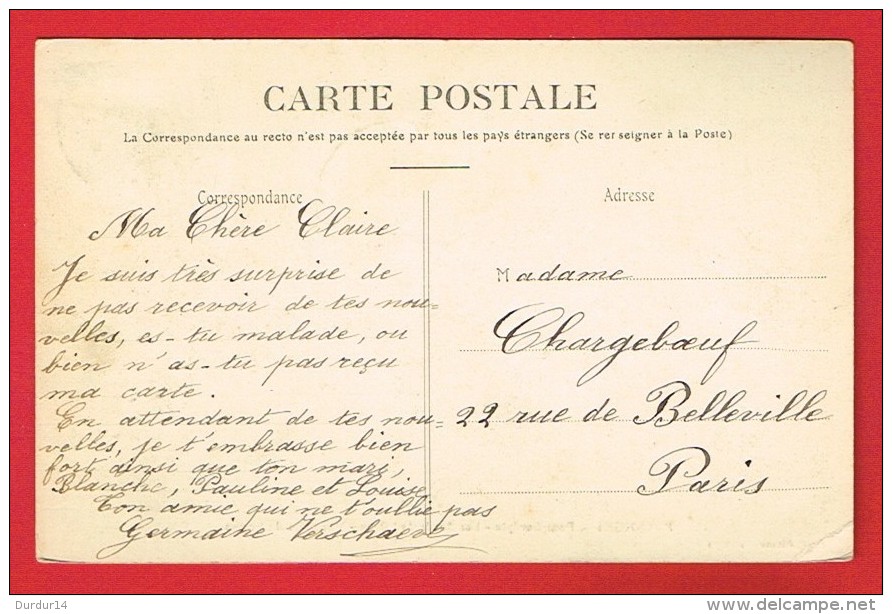 CARTE POSTALE
La Correspondance au recto n'est pas acceptée par tous les pays étrangers (Se renseigner à la Poste)
Correspondance
Ma Chère Claire
Je suis très surprise de
ne pas recevoir de tes nou=
velles, es-tu malade, ou
bien n'as-tu pas reçu
ma carte.
En attendant de tes nou=
velles, je t'embrasse bien
fort ainsi que ton mari,
Blanche, Pauline et Louise
Ton amie qui ne t'oublie pas
Germaine
Adresse
Madame
Chargebœuf
22 rue de Belleville
Paris
Durdur14
http://www.delcampe.net